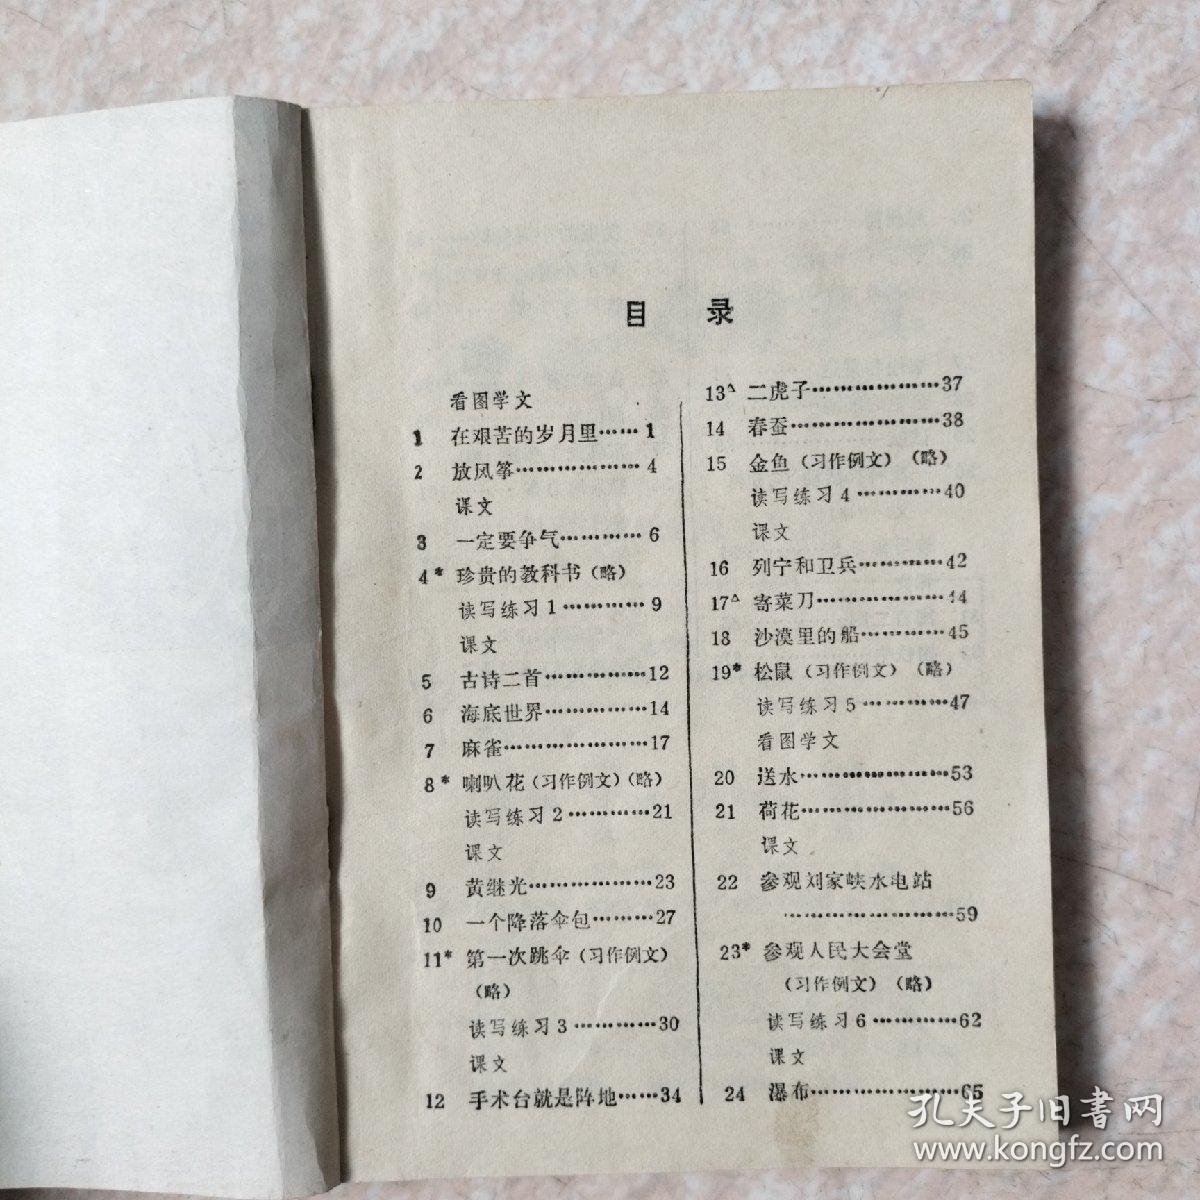 目 录
看图学文
1 在艰苦的岁月里……1
2 放风筝………………4
课文
3 一定要争气…………6
4* 珍贵的教科书(略)
读写练习1…………9
课文
5 古诗二首……………12
6 海底世界……………14
7 麻雀…………………17
8* 喇叭花(习作例文)(略)
读写练习2…………21
课文
9 黄继光………………23
10 一个降落伞包………27
11* 第一次跳伞(习作例文)
(略)
读写练习3…………30
课文
12 手术台就是阵地……34
13△ 二虎子………………37
14 春蚕…………………38
15 金鱼(习作例文)(略)
读写练习4…………40
课文
16 列宁和卫兵…………42
17△ 寄菜刀………………44
18 沙漠里的船…………45
19* 松鼠(习作例文)(略)
读写练习5…………47
看图学文
20 送水…………………53
21 荷花…………………56
课文
22 参观刘家峡水电站
……………………59
23* 参观人民大会堂
(习作例文)(略)
读写练习6…………62
课文
24 瀑布…………………65
孔夫子旧书网
www.kongfz.com